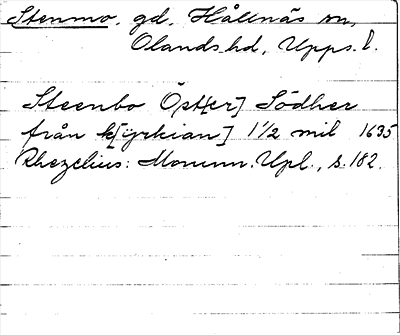 Stenmo, gd, Hållnäs sn,
Olands hd, Upps. l.
Steenbo Öst[er] Södher
från k[yrkian] 1½ mil 1635
Rhezelius: Monum. Upl., s. 182.